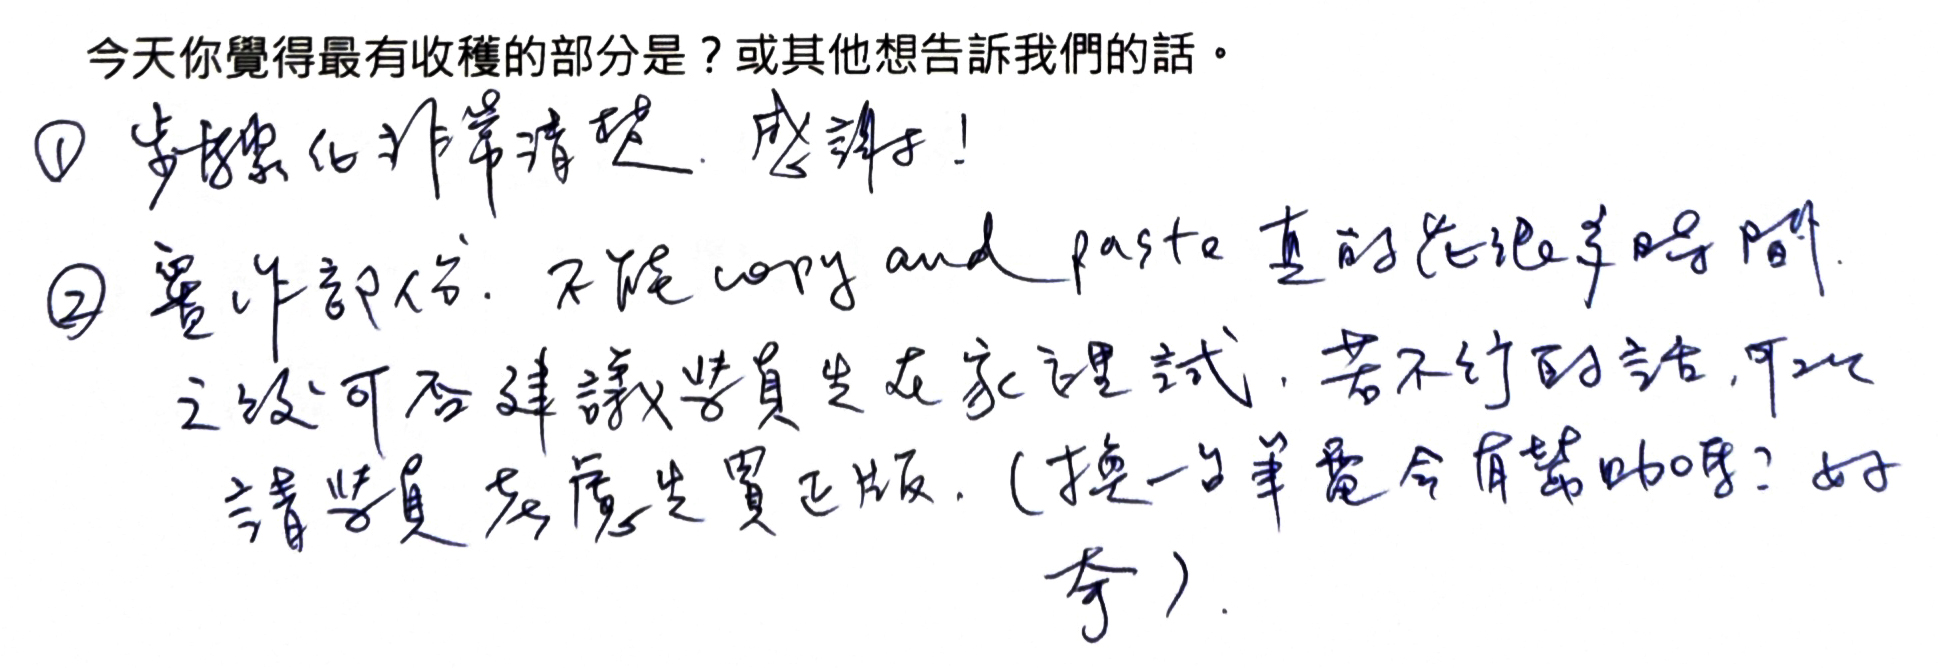 今天你覺得最有收穫的部分是？或其他想告訴我們的話。
① 步驟化非常清楚. 感謝!
② 實作部份. 不能 copy and paste 真的花很多時間.
之後可否建議學員先在家裡試. 若不行的話,可以
請學員考慮先買正版. (換一台筆電會有幫助嗎? 好
奇).